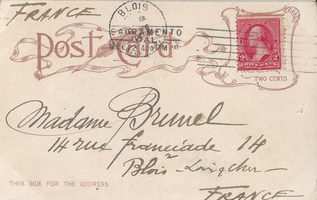 FRANCE
BLOIS
SACRAMENTO
CAL.
Post Card
TWO CENTS
Madame Brunel
14 rue Franciade 14
Blois Loir et Cher
THIS SIDE FOR THE ADDRESS
FRANCE